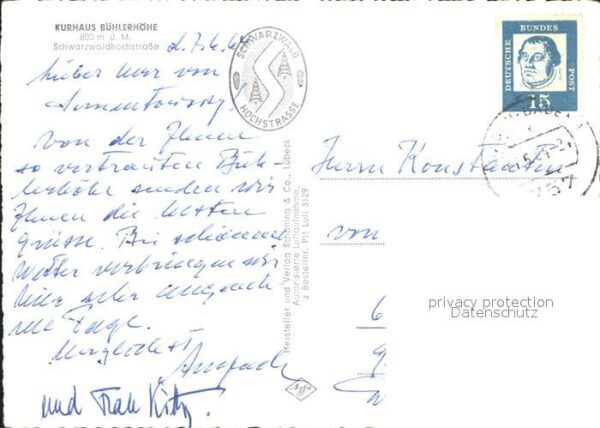 KURHAUS BÜHLERHÖHE
800 m Ü. M.
Schwarzwaldhochstraße
SCHWARZWALD
HOCHSTRASSE
DEUTSCHE
BUNDES
POST
15
BADEN
757
d. 7.6.
Lieber Herr von
von der Ihnen
so vertrauten Büh-
lerhöhe senden wir
Ihnen die besten
Grüsse. Bei schönem
Wetter verbringen wir
hier sehr angeneh-
me Tage.
Herzlichst
und Frau
Hersteller und Verlag Schöning & Co., Lübeck
Autorisierte Luftaufnahme,
Bestellnr. Pit Luft 3129
Herrn Konstantin
von
6
privacy protection
Datenschutz